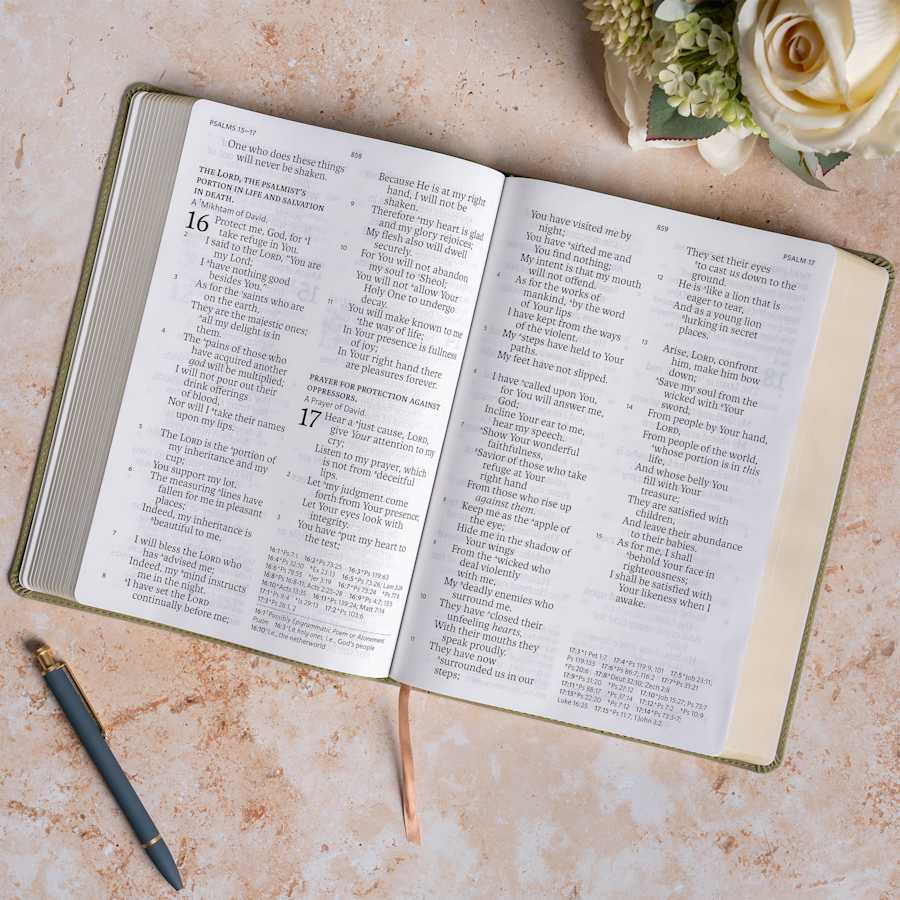 PSALMS 15–17
858
One who does these things
will never be shaken.
THE LORD, THE PSALMIST'S
PORTION IN LIFE AND SALVATION
IN DEATH.
A Mikhtam of David.
16 Protect me, God, for I
take refuge in You.
2
I said to the LORD, "You are
my Lord;
I have nothing good
besides You."
3
As for the saints who are
on the earth,
They are the majestic ones;
all my delight is in
them.
4
The pains of those who
have acquired another
god will be multiplied;
I will not pour out their
drink offerings
of blood,
Nor will I take their names
upon my lips.
5
The LORD is the portion of
my inheritance and my
cup;
You support my lot.
6
The measuring lines have
fallen for me in pleasant
places;
Indeed, my inheritance is
beautiful to me.
7
I will bless the LORD who
has advised me;
Indeed, my mind instructs
me in the night.
8
I have set the LORD
continually before me;
Because He is at my right
hand, I will not be
shaken.
9
Therefore my heart is glad
and my glory rejoices;
My flesh also will dwell
securely.
10
For You will not abandon
my soul to Sheol;
You will not allow Your
Holy One to undergo
decay.
11
You will make known to me
the way of life;
In Your presence is fullness
of joy;
In Your right hand there
are pleasures forever.
PRAYER FOR PROTECTION AGAINST
OPPRESSORS.
A Prayer of David.
17 Hear a just cause, LORD,
give Your attention to my
cry;
Listen to my prayer, which
is not from deceitful
lips.
2
Let my judgment come
forth from Your presence;
Let Your eyes look with
integrity.
3
You have put my heart to
the test;
16:10 I.e., the netherworld
859
PSALM 17
You have visited me by
night;
You have sifted me and
You find nothing;
My intent is that my mouth
will not offend.
4
As for the works of
mankind, by the word
of Your lips
I have kept from the ways
of the violent.
5
My steps have held to Your
paths.
My feet have not slipped.
6
I have called upon You,
for You will answer me,
God;
Incline Your ear to me,
hear my speech.
7
Show Your wonderful
faithfulness,
Savior of those who take
refuge at Your
right hand
From those who rise up
against them.
8
Keep me as the apple of
the eye;
Hide me in the shadow of
Your wings
9
From the wicked who
deal violently
with me,
My deadly enemies who
surround me.
10
They have closed their
unfeeling hearts,
With their mouths they
speak proudly.
11
They have now
surrounded us in our
steps;
They set their eyes
to cast us down to the
ground.
12
He is like a lion that is
eager to tear,
And as a young lion
lurking in secret
places.
13
Arise, LORD, confront
him, make him bow
down;
Save my soul from the
wicked with Your
sword,
14
From people by Your hand,
LORD,
From people of the world,
whose portion is in this
life,
And whose belly You
fill with Your
treasure;
They are satisfied with
children,
And leave their abundance
to their babies.
15
As for me, I shall
behold Your face in
righteousness;
I shall be satisfied with
Your likeness when I
awake.